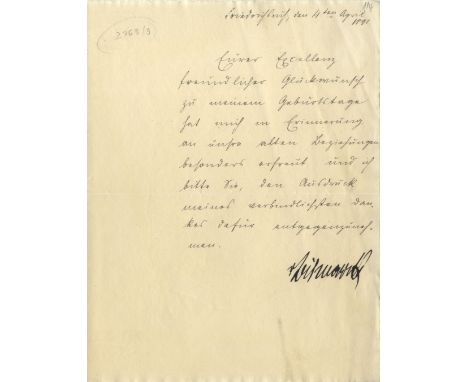 114
Friedrichsruh, den 4ten April
1891.
2768/3
Eurer Excellenz
freundlicher Glückwunsch
zu meinem Geburtstage
hat mich in Erinnerung
an unsre alten Beziehungen
besonders erfreut und ich
bitte Sie, den Ausdruck
meines verbindlichsten Dan-
kes dafür entgegenzuneh-
men.
v Bismarck